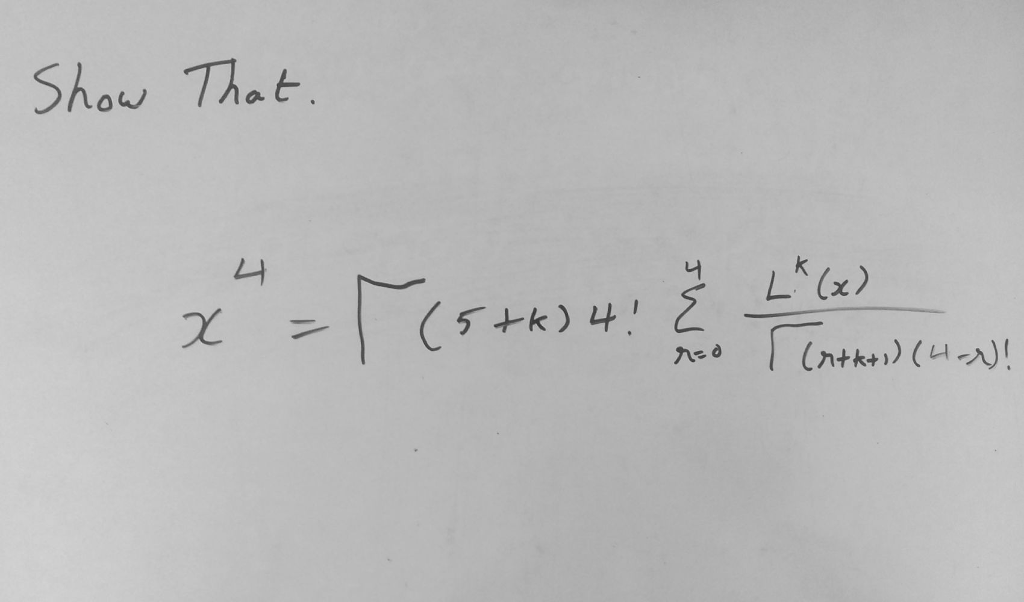 Show That.
x^4 = Γ(5+k) 4! Σ_{r=0}^{4} L^k(x) / Γ(r+k+1) (4-r)!